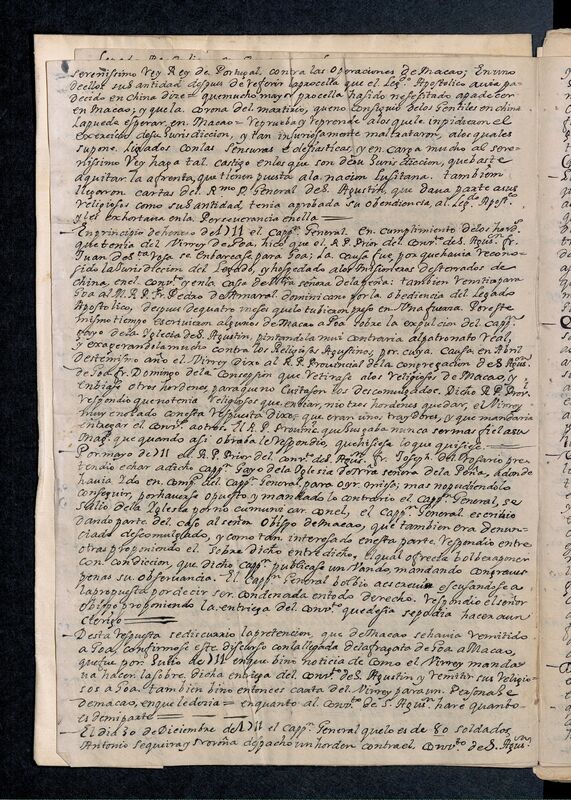 serenissimo Rey Rey de Portugal, contra las operaciones de Macao; En uno
de ellos su Santidad despues de referir lo que el Legdo Apostolico avia pa-
decido en China dize = que mucho mayor es haver sido
en Macao; y que la corona del martirio, que no consiguio de los Gentiles en china
la puede esperar en Macao = reprueba y reprende a los que le impidieron el
exercicio de su Jurisdiccion, y tan injuriosamente maltrataron, a los quales
supone ligados con las sensuras eclesiasticas; y en carga mucho al sere-
nissimo Rey haga tal castigo en los que son de su Jurisdiccion, que baste
a quitar la afrenta, que tienen puesta a la nacion Lusitana. tambien
llegaron cartas del Rmo P. General de S. Agustin, que dava parte a sus
religiosos como su Santidad, tenia aprobada su obendiencia, al Legdo Apostco
y les exhortava en la Perseverancia en ella =
En principio de henero de 1711 el Cappn General. En cumplimiento de los hords
que tenia del Virrey de Goa, hizo que el R. P. Prior del Convto de S. Agusn Fr.
Juan de Sta Rosa se enbarcase para Goa; La causa fue, porque havia recono-
sido la Jurisdiccion del Legado, y hospedado a los Misioneros desterrados de
china, en el convto y en la casa de Ntra señora de la Peña: tambien remitia para
Goa al M. R. P. Fr. Pedro de Amaral dominicano por la obediencia del Legado
Apostolico, despues de quatro meses que lo tubieron preso en Una fuerza. Por este
mismo tiempo escrivieron algunos de Macao a Goa sobre la expulcion del Cappn
Gayo de la Yglesia de S. Agustin, pintandola mui contraria al patronato Real,
y exagerandola mucho contra los Religiosos Agustinos; por cuya causa en Abril
deste mismo año el Virrey dixo al R. P. Provincial de la congregacion de S. Agusn
de Goa Fr. Domingo de la Consepsion que retirase a los religiosos de Macao, y
enbiase otros hordenes, para que no evitasen los descomulgados. Dicho R. P. Pror
respondio que no tenia religiosos que enbiar, ni otros hordenes que dar, el Virrey
muy enojado con esta respuesta dixo = que eran unos traydores, y que mandaria
entregar el convto a otros. El R. P. Provincl que buscaba nunca ser mas fiel a su
Magd que quando asi obraba le respondio, que hisiese lo que quisiese =
Por mayo de 1711 el R. P. Prior del convto de S. Agusn Fr. Joseph del Rosario pre-
tendio echar a dicho Cappn Gayo de la Yglesia de Ntra señora de la Peña, adonde
havia Ido en compa del Cappn General para oyr missa; mas no pudiendolo
conseguir, por haverse opuesto y mandado lo contrario el Cappn General, se
salio de la Yglesia por no cumunicar con el, el Cappn General escrivio
dando parte del caso al señor Obispo de Macao, que tambien era denun-
ciado descomulgado, y como tan interesado en esta parte. Respondio entre
otras proponiendo el sobre dicho entredicho, el qual ofrecia bolver a poner
con condicion, que dicho Cappn publicase un Vando, mandando con graves
penas su observancia. El Cappn General bolvio a escrevir escusandose a
la propuesta por decir ser condenada en todo derecho. Respondio el señor
Obispo proponiendo la entriega del convto que desia se podia hacer a un
Clerigo =
Desta respuesta se discurrio la pretencion, que de Macao se havia remitido
a Goa, confirmose este discurso con la llegada de la fragata de Goa a Macao,
que fue por Julio de 1711 en que bino noticia de como el Virrey manda-
va hacer la sobre dicha entriega del convto de S. Agustin y remitir sus religio-
sos a Goa. tambien bino entonces carta del Virrey para un Personaxe
de macao, en que le desia = en quanto al convto de S. Agusn hare quanto
es de mi parte =
El dia 30 de Diciembre de 1711 el Cappn General que lo es de 80 soldados
Antonio Sequeira y Noroña despacho un horden contra el Convto de S. Agusn